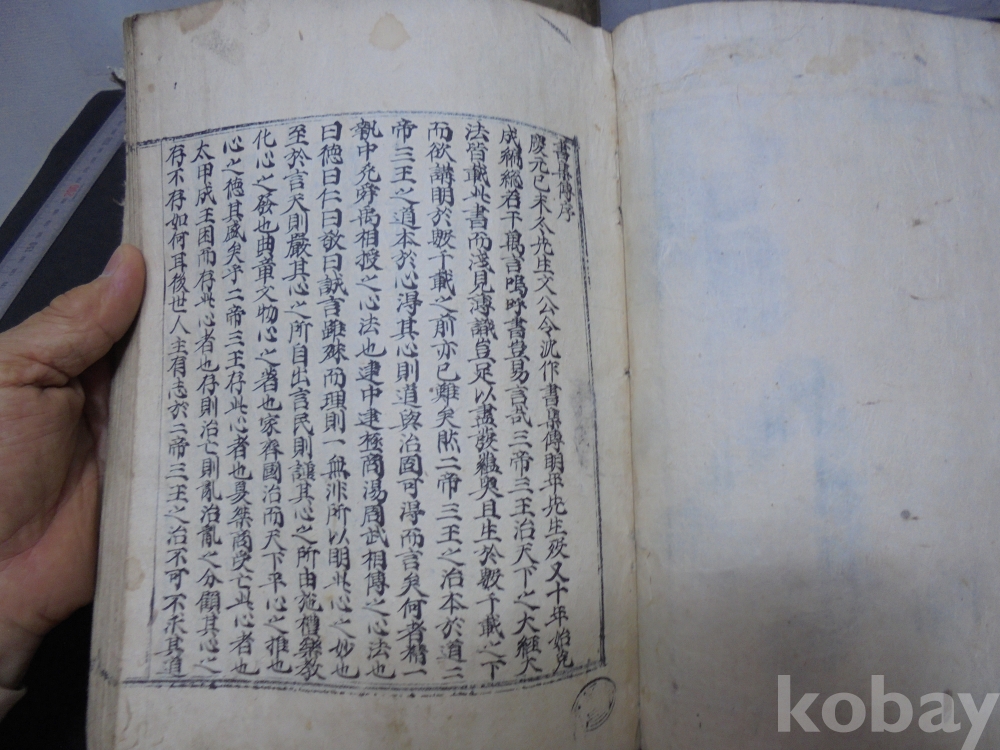 書集傳序
慶元己未冬先生文公令沈作書集傳明年先生歿又十年始克
成編總若干萬言嗚呼書豈易言哉二帝三王治天下之大經大
法皆載此書而淺見薄識豈足以盡發蘊奧且生於數千載之下
而欲講明於數千載之前亦已難矣然二帝三王之治本於道二
帝三王之道本於心得其心則道與治固可得而言矣何者精一
執中堯舜禹相授之心法也建中建極商湯周武相傳之心法也
曰德曰仁曰敬曰誠言雖殊而理則一無非所以明此心之妙也
至於言天則嚴其心之所自出言民則謹其心之所由施禮樂教
化心之發也典章文物心之著也家齊國治而天下平心之推也
心之德其盛矣乎二帝三王存此心者也夏桀商受亡此心者也
太甲成王困而存此心者也存則治亡則亂治亂之分顧其心之
存不存如何耳後世人主有志於二帝三王之治不可不求其道
kobay